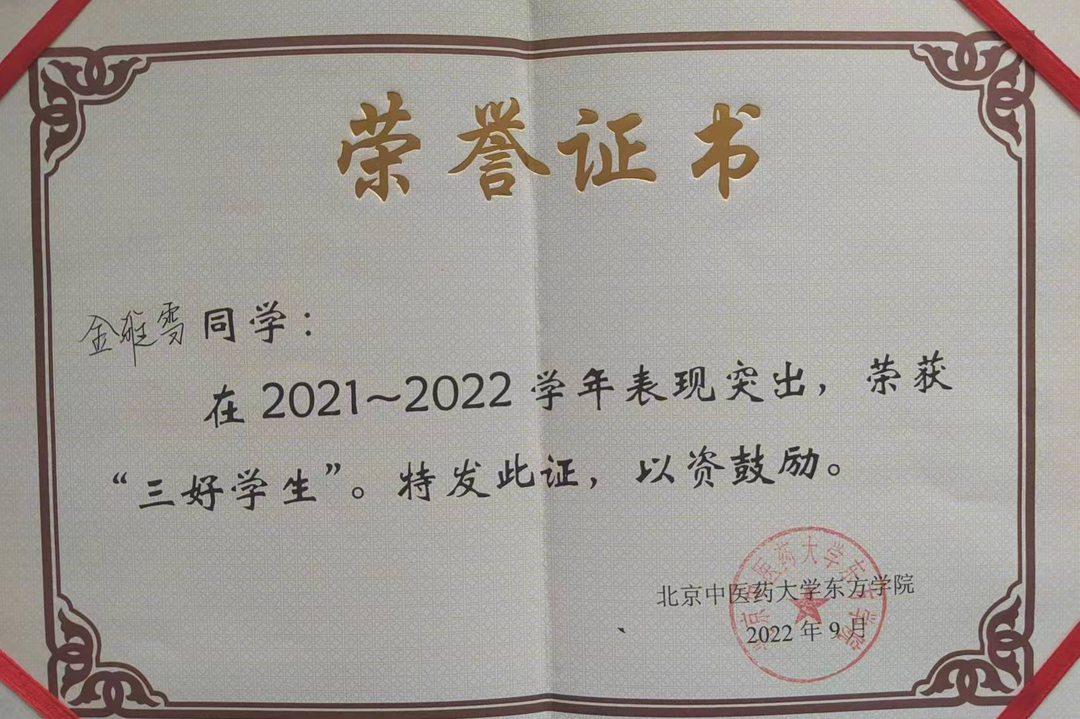 荣誉证书
金雅雪同学：
在2021～2022学年表现突出，荣获
“三好学生”。特发此证，以资鼓励。
北京中医药大学东方学院
2022年9月
北京中医药大学东方学院